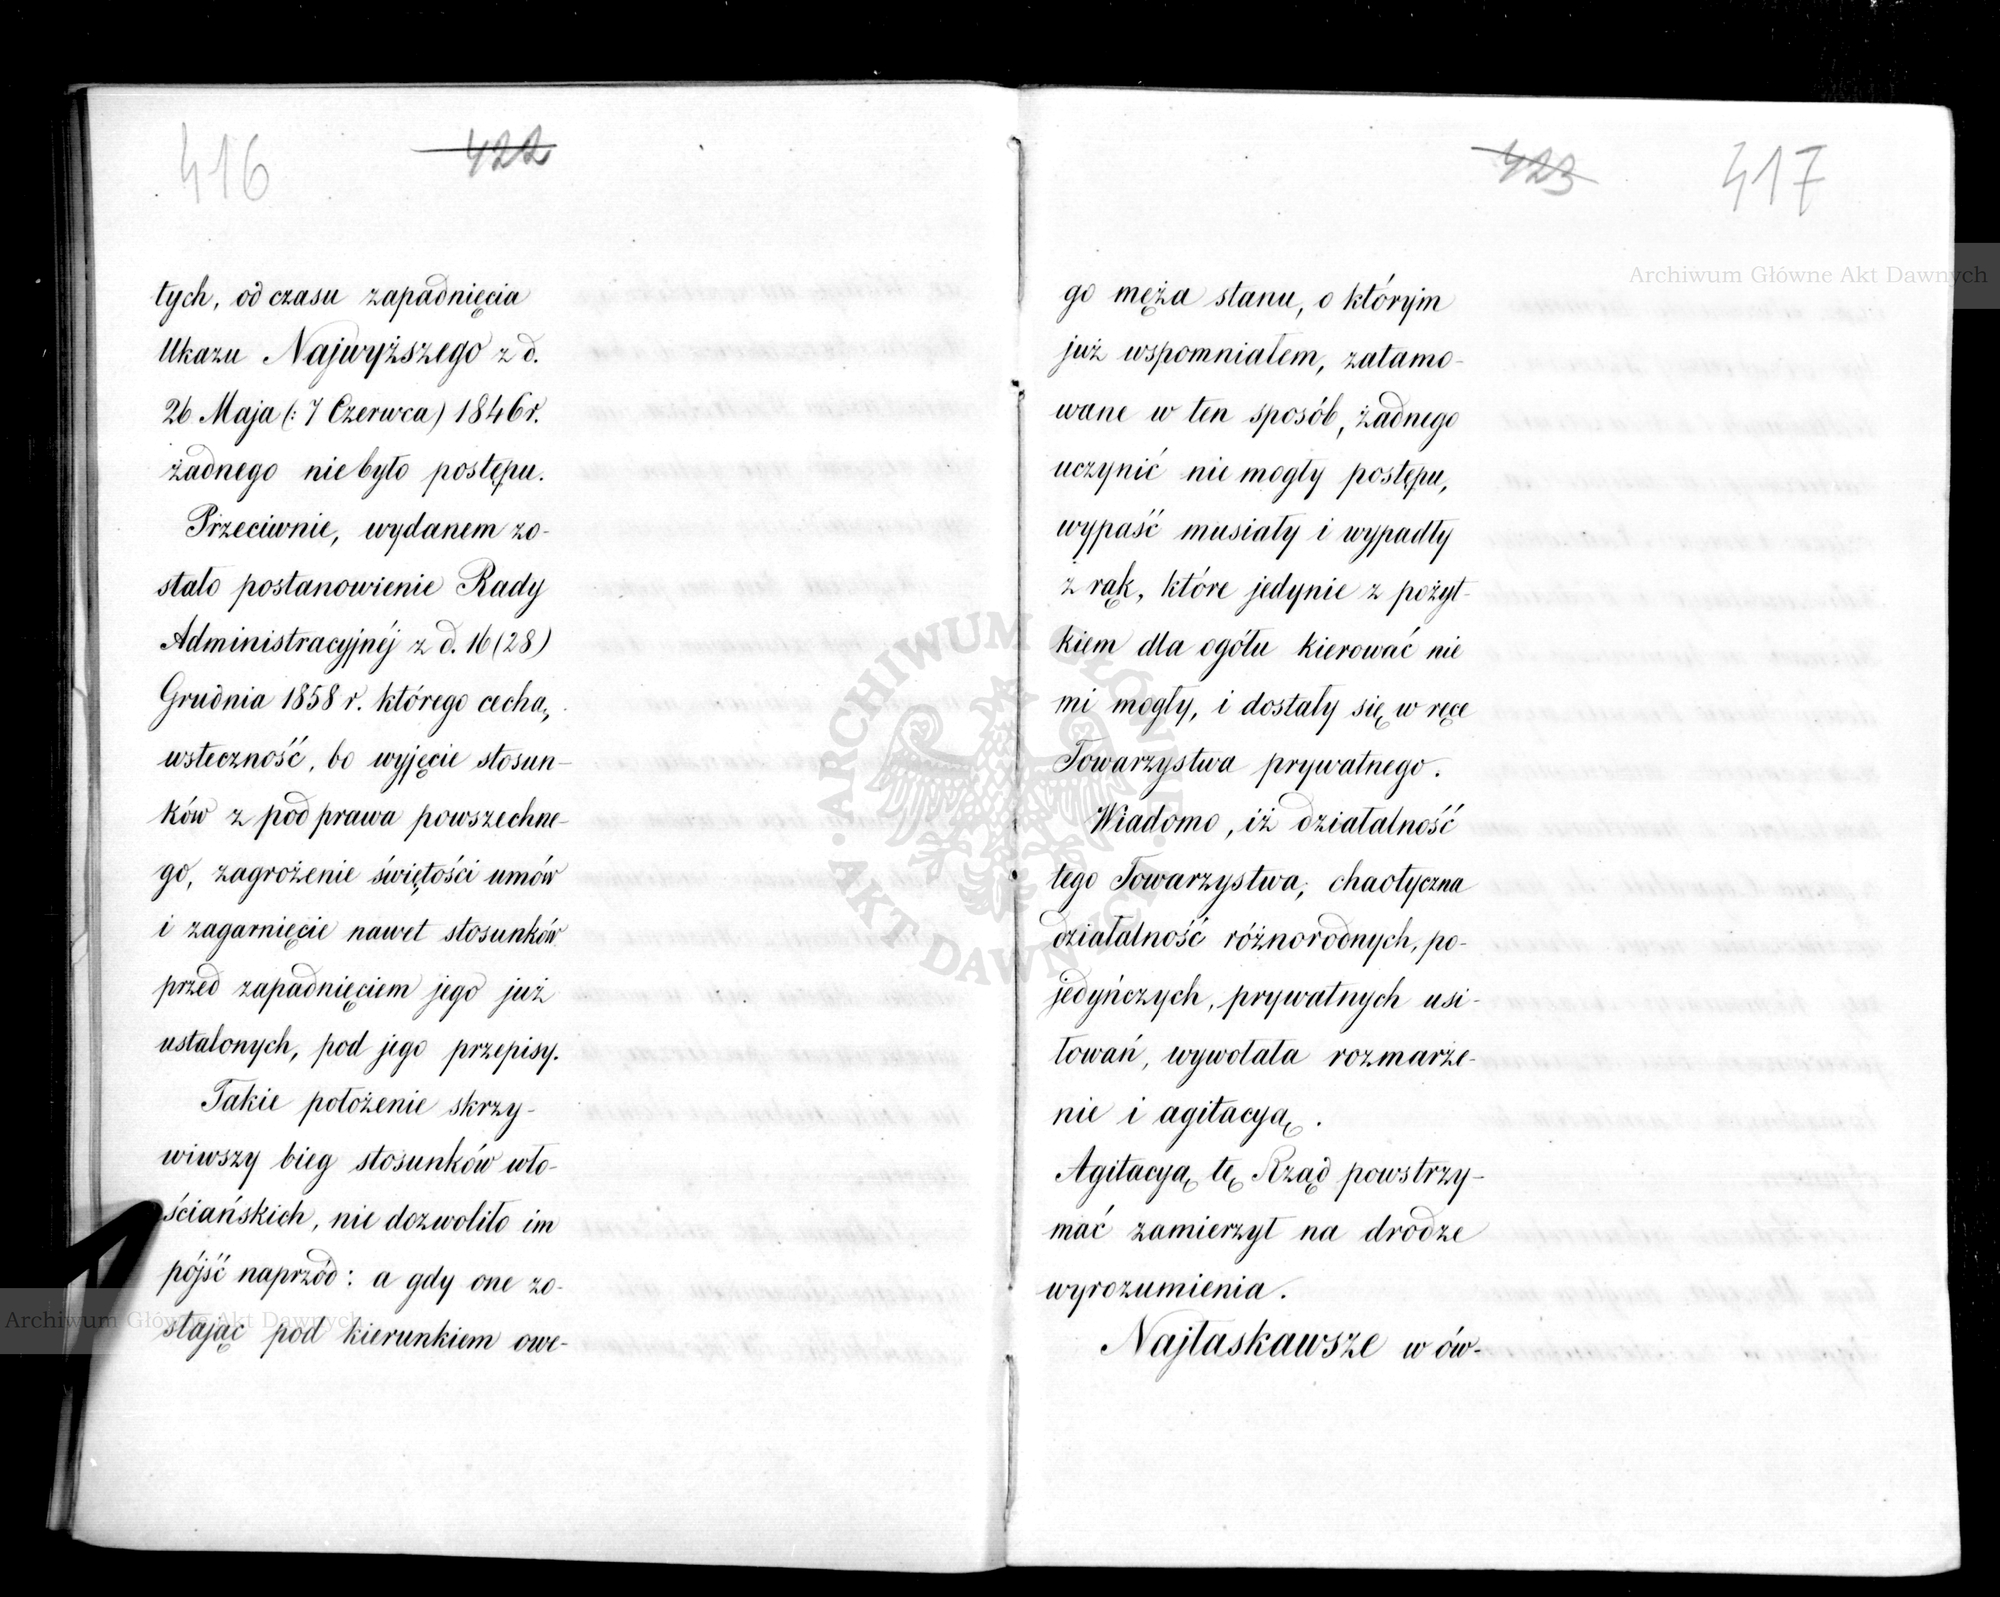 416
422
tych, od czasu zapadnięcia
Ukazu Najwyższego z d.
26 Maja (: 7 Czerwca) 1846 r.
żadnego nie było postępu.
Przeciwnie, wydanem zo-
stało postanowienie Rady
Administracyjnéj z d. 16 (28)
Grudnia 1858 r. którego cechą,
wsteczność, bo wyjęcie stosun-
ków z pod prawa powszechne-
go, zagrożenie świętości umów
i zagarnięcie nawet stosunków
przed zapadnięciem jego już
ustalonych, pod jego przepisy.
Takie położenie skrzy-
wiwszy bieg stosunków wło-
ściańskich, nie dozwoliło im
pójść naprzód: a gdy one zo-
stając pod kierunkiem owe-
423
417
go męża stanu, o którym
już wspomniałem, zatamo-
wane w ten sposób, żadnego
uczynić nie mogły postępu,
wypaść musiały i wypadły
z rąk, które jedynie z pożyt-
kiem dla ogółu kierować nie
mi mogły, i dostały się w ręce
Towarzystwa prywatnego.
Wiadomo, iż działalność
tego Towarzystwa, chaotyczna
działalność różnorodnych, po-
jedyńczych, prywatnych usi-
łowań, wywołała rozmarze-
nie i agitacyą.
Agitacyą tę Rząd powstrzy-
mać zamierzył na drodze
wyrozumienia.
Najłaskawsze w ów-
Archiwum Główne Akt Dawnych
Archiwum Główne Akt Dawnych
ARCHIWUM GŁÓWNE AKT DAWNYCH